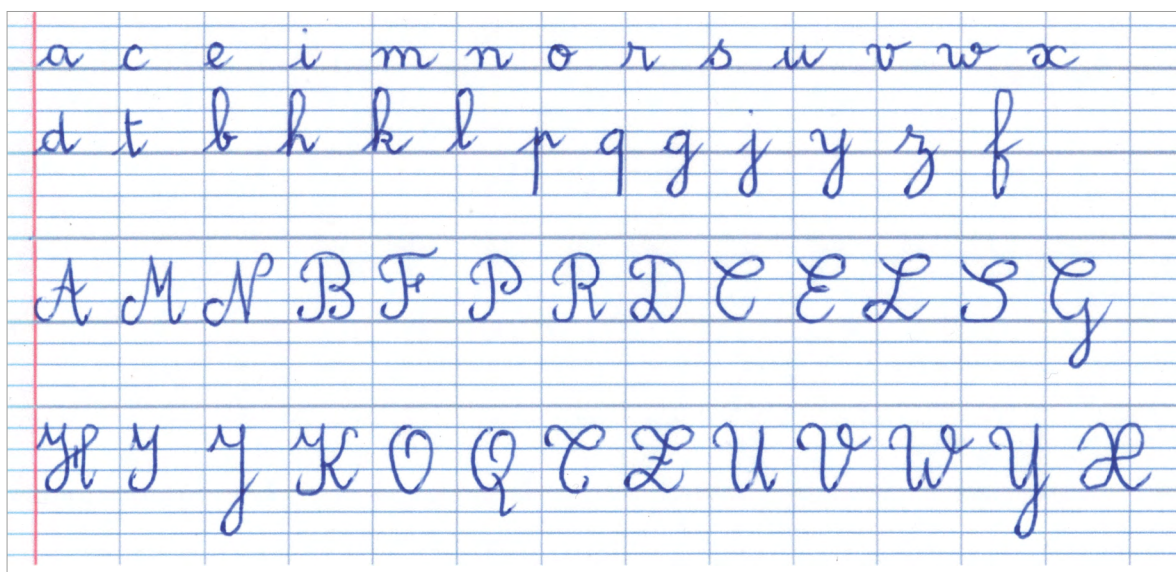 a c e i m n o r s u v w x
d t b h k l p q g j y z f
A M N B F P R D C E L S G
H I J K O Q T Z U V W Y X